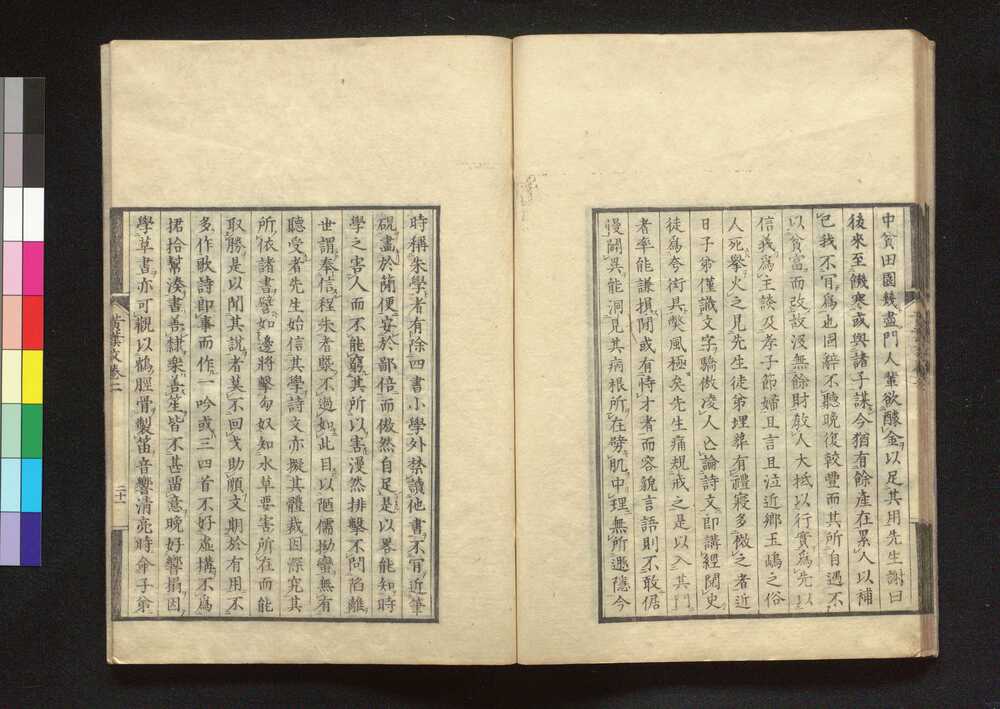 中貧田園幾盡門人輩欲醵金以足其用先生謝曰
後來至饑寒或與諸子謀今猶有餘產在累人以補
已我不肎爲也固辭不聽晚復較豐而其所自遇不
以貧富而改故沒無餘財敎人大抵以行實爲先以
信義爲主談及孝子節婦且言且泣近鄉玉嶋之俗
人死擧火之見先生徒第埋葬有禮寝多倣之者近
日子弟僅識文字驕傲凌人亾論詩文即講經閲史
徒爲夸街具獘風極矣先生痛規戒之是以入其門
者率能謙損閒或有恃才者而容貌言語則不敢倨
謾鬪異能洞見其病根所在劈肌中理無所遯隱今
時稱朱學者有除四書小學外禁讀他書不肎近筆
硯盡於簡便安於鄙倍而傲然自足是以畧能知時
學之害人而不能窮其所以害漫然排擊不問陷離
世謂奉信程朱者槩不過如此目以陋儒拗蠻無有
聽受者先生始信其學詩文亦擬其體裁因深究其
所依諸書譬如邊將擊匈奴知水草要害所在而能
取勝是以聞其說者莫不回戈助順文期於有用不
多作歌詩即事而作一吟或三四首不好虛搆不爲
捃拾幫湊書善隸樂善笙皆不甚畱意晚好響搨因
學草書亦可觀以鶴脛骨製笛音響清亮時命子弟
黃葉文卷二
二十一